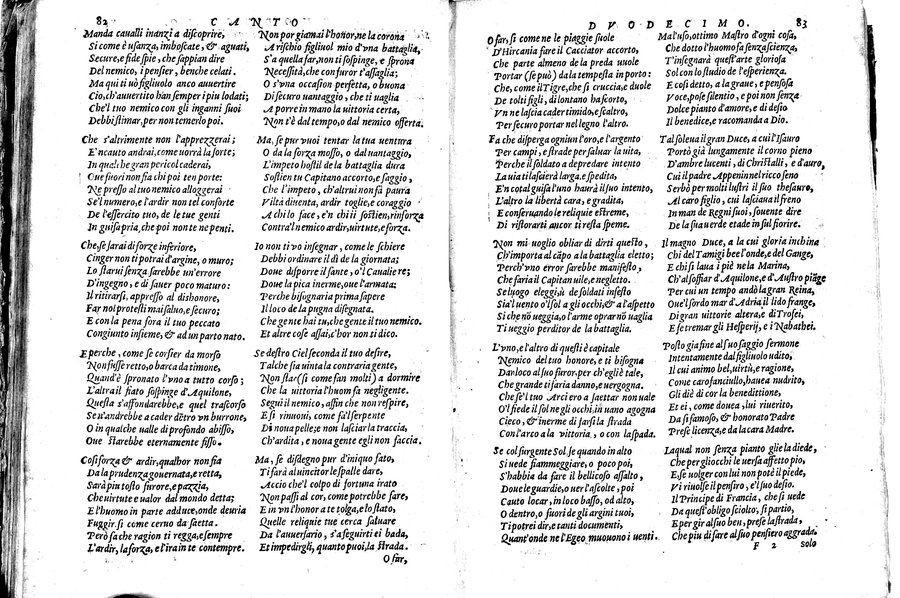 82 CANTO
Manda caualli inanzi a discoprire,
Si come è usanza, imboscate, & aguati,
Secure, e fide spie, che sappian dire
Del nemico, i pensier, benche celati.
Ma qui ti uò figliuolo anco auuertire
Cio, ch'auuertito han sempre i piu lodati;
Che'l tuo nemico con gli inganni suoi
Debbi stimar, per non temerlo poi.
Che s'altrimente non l'apprezzerai;
E'ncauto andrai, come uorrà la sorte;
In qualche gran pericol caderai,
Che fuori non fia chi poi ten porte:
Ne presso al tuo nemico alloggerai
Se'l numero, e l'ardir non tel consorte
De l'essercito tuo, de le tue genti
In guisa pria, che poi non te ne penti.
Che, se sarai di forze inferiore,
Cinger non ti potrai d'argine, o muro;
Lo starui senza sarebbe un'errore
D'ingegno, e di sauer poco maturo:
Il ritirarsi, appresso al dishonore,
Far nol potresti mai saluo, e securo;
E con la pena fora il tuo peccato
Congiunto insieme, & ad un parto nato.
E perche, come se corsier da morso
Non fusse retto, o barca da timone,
Quand'è spronato l'vno a tutto corso;
L'altra il fiato sospinge d'Aquilone,
Questa s'affondarebbe, e quel trascorso
Sen'andrebbe a cader dẽtro vn burrone,
O in qualche ualle di profondo abisso,
Oue starebbe eternamente fisso.
Cosi forza & ardir, qualhor non fia
Da la prudenza gouernata, e retta,
Sarà piu tosto furore, e pazzia,
Che uirtute e ualor dal mondo detta;
E l'huomo in parte adduce, onde deuria
Fuggir si come ceruo da saetta.
Però fa che ragion ti regga, e sempre
L'ardir, la forza, e l'ira in te contempre.
Non por giamai l'honor, ne la corona
A rischio figliuol mio d'vna battaglia,
S'a quella far, non ti sospinge, e sprona
Necessità, che con furor t'assaglia;
O s'vna occasion perfetta, o buona
Di securo uantaggio, che ti uaglia
A porre in mano la uittoria certa,
Non t'è dal tempo, o dal nemico offerta.
Ma, se pur vuoi tentar la tua uentura
O da la forza mosso, o dal uantaggio,
L'impeto hostil de la battaglia dura
Sostien tu Capitano accorto, e saggio,
Che l'impeto, ch'altrui non fà paura
Viltà diuenta, ardir toglie, e coraggio
A chi lo face, e'n chi il sostien, rinforza
Contra'l nemico ardir, uirtute, e forza.
Io non ti vo insegnar, come le schiere
Debbi ordinare il dì de la giornata;
Doue disporre il fante, o'l Caualiere;
Doue la pica inerme, oue l'armata;
Perche bisognaria prima sapere
Il loco de la pugna disegnata.
Che gente hai tu, che gente il tuo nemico.
Et altre cose assai, c'hor non ti dico.
Se destro Ciel seconda il tuo desire,
Talche sia uinta la contraria gente,
Non star (si come fan molti) a dormire
Che la uittoria l'huom fa negligente.
Segui il nemico, affin che non respire,
E si rinoui, come fà'l serpente
Di noua pelle; e non lasciar la traccia,
Ch'ardita, e noua gente egli non faccia.
Ma, se disdegno pur d'iniquo fato,
Ti sarà al uincitor le spalle dare,
Accio che'l colpo di fortuna irato
Non passi al cor, come potrebbe fare,
E in vn l'honor a te tolga, e lo stato,
Quelle reliquie tue cerca saluare
Da l'auuersario, s'a seguirti ei bada,
Et impedirgli, quanto puoi, la strada.
O far,
DVODECIMO. 83
O far, si come ne le piaggie suole
D'Hircania fare il Cacciator accorto,
Che parte almeno de la preda uuole
Portar (se può) da la tempesta in porto:
Che, come il Tigre, che si cruccia, e duole
De tolti figli, di lontano ha scorto,
Vn ne lascia cader timido, e scaltro,
Per securo portar nel legno l'altro.
Fa che disperga ogniun l'oro, e l'argento
Per campi, e strade per saluar la uita,
Perche il soldato a depredare intento
La uia ti lascierà larga, e spedita,
E'n cotal guisa l'uno haurà il suo intento,
L'altro la libertà cara, e gradita,
E conseruando le reliquie estreme,
Di ristorarti ancor ti resta speme.
Non mi uoglio obliar di dirti questo,
Ch'importa al cãpo a la battaglia eletto;
Perch'vn error sarebbe manifesto,
Che faria il Capitan uile, e negletto.
Se luogo eleggi, ù de soldati infesto
Sia'l uento o'l sol a gli occhi, & a l'aspetto
Si che nõ ueggia, o l'arme oprar nõ uaglia
Ti ueggio perditor de la battaglia.
L'vno, e l'altro di questi è capitale
Nemico del tuo honore, e ti bisogna
Dar loco al suo furor, per ch'egli è tale,
Che grande ti faria danno, e uergogna.
Che se'l tuo Arciero a saettar non uale
O'l fiede il sol ne gli occhi, in uano agogna
Cieco, & inerme di farsi la strada
Con l'arco a la vittoria, o con la spada.
Se col surgente Sol, se quando in alto
Si uede fiammeggiare, o poco poi,
S'habbia da fare il bellicoso assalto,
Doue le guardie, o uer l'ascolte, poi
Cauto locar, in loco basso, od alto,
O dentro, o fuori de gli argini tuoi,
Ti potrei dir, e tanti documenti,
Quant'onde ne l'Egeo muouono i uenti.
Ma l'uso, ottimo Mastro d'ogni cosa,
Che dotto l'huomo fa senza scienza,
T'insegnarà quest'arte gloriosa
Sol con lo studio de l'esperienza.
E così detto, a la graue, e pensosa
Voce, pose silentio, e poi non senza
Dolce pianto d'amore, e di desio
Il benedice, e racomanda a Dio.
Tal soleua il gran Duce, a cui l'Isauro
Portò già lungamente il corno pieno
D'ambre lucenti, di Christalli, e d'auro,
Cui il padre Appennin nel ricco seno
Serbò per molti lustri il suo thesauro,
Al caro figlio, cui lasciaua il freno
In man de Regni suoi, souente dire
De la sua uerde etade in sul fiorire.
Il magno Duce, a la cui gloria inchina
Chi del Tamigi bee l'onde, e del Gange,
E chi si laua i piè ne la Marina,
Ch'al soffiar d'Aquilone, e d'Austro piãge
Per cui un tempo andò la gran Reina,
Oue'l sordo mar d'Adria il lido frange,
Di gran uittorie altera, e di Trofei,
E se tremar gli Hesperij, e i Nabathei.
Posto gia fine al suo saggio sermone
Intentamente dal figliuolo udito,
Il cui animo bel, uirtù, e ragione,
Come caro fanciullo, hauea nudrito,
Gli diè di cor la benedittione,
Et ei, come douea, lui riuerito,
Da sì famoso, & honorato Padre
Prese licenza, e da la cara Madre.
La qual non senza pianto gli e la diede,
Che per gliocchi le uersa affetto pio,
E, se uolger con lui non potè il piede,
Vi riuolse il pensiro, e'l suo desio.
Il Principe di Francia, che si uede
Da quest'obligo sciolto, si partio,
E per gir al suo ben, prese la strada,
Che piu di fare al suo pensiero aggrada.
F 2 solo